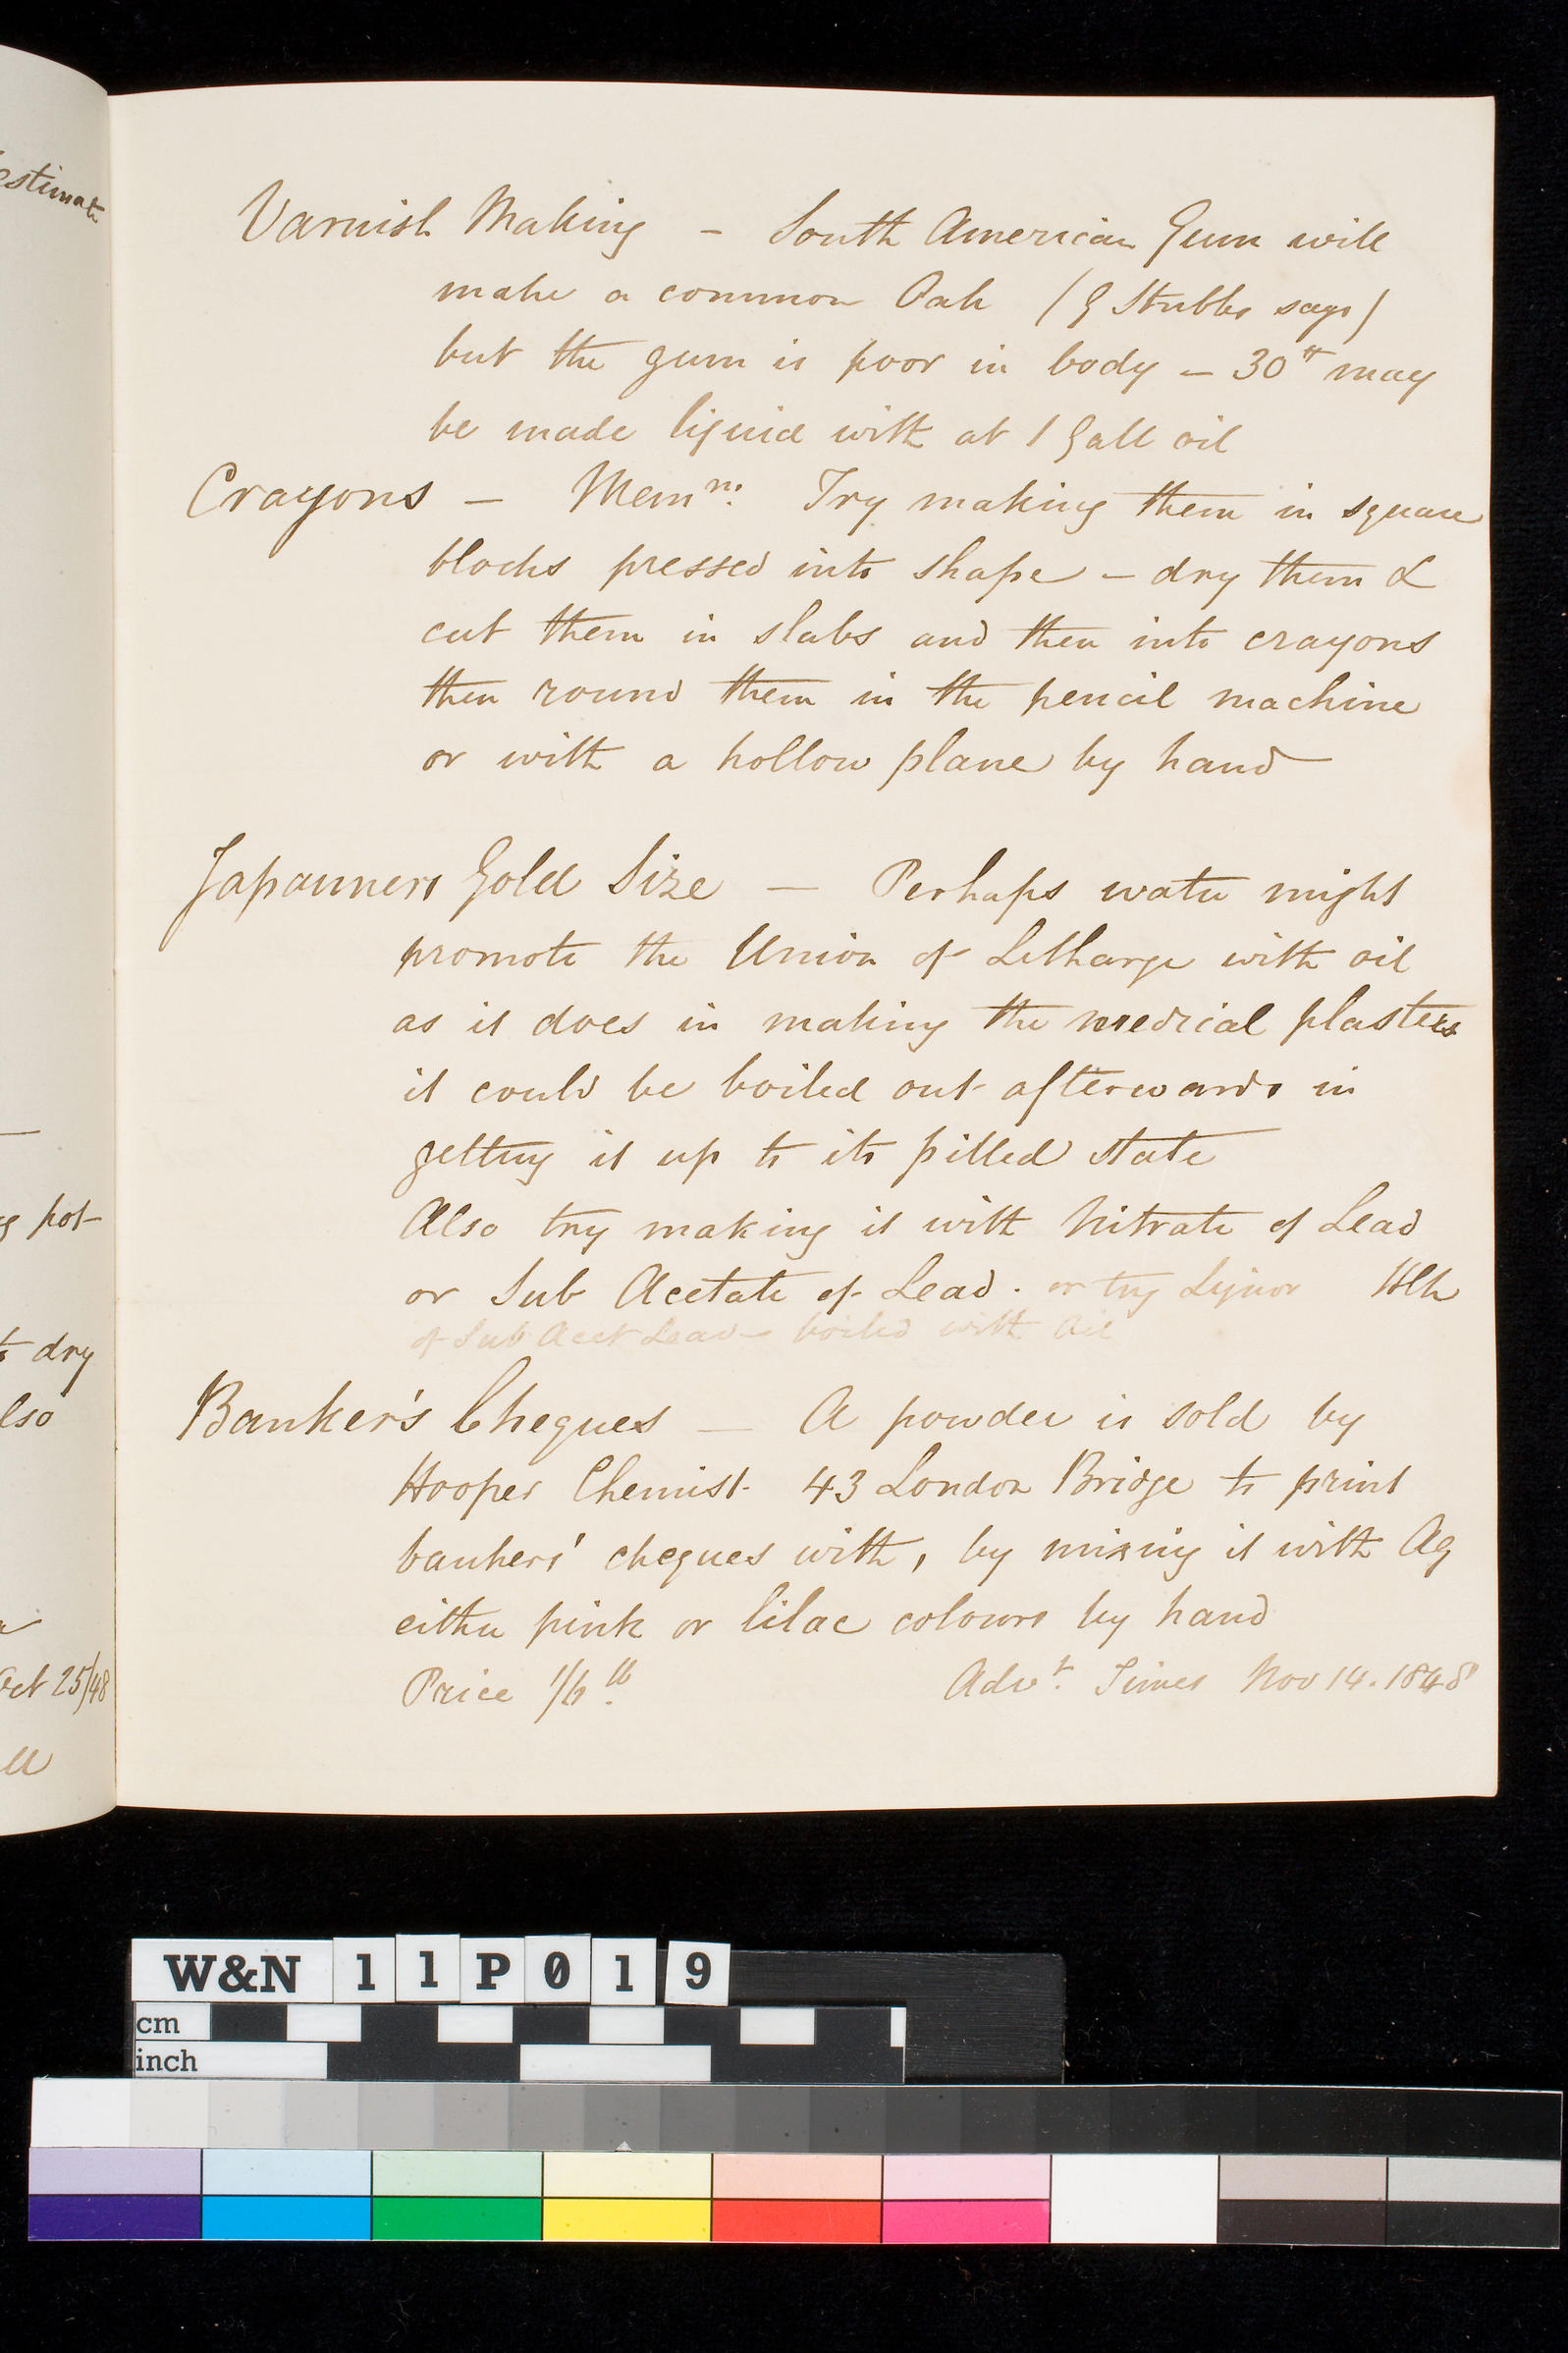 estimate
Varnish Making – South American Gum will
make a common Oak (G Stubbs says)
but the gum is poor in body – 30 lb may
be made liquid with at 1 Gall oil
Crayons – Memm: Try making them in square
blocks pressed into shape – dry them &
cut them in slabs and then into crayons
then round them in the pencil machine
or with a hollow plane by hand
Japanners Gold Size — Perhaps water might
promote the Union of Litharge with oil
as it does in making the medical plasters
it could be boiled out afterwards in
getting it up to its pilled state
Also try making it with Nitrate of Lead
or Sub Acetate of Lead. or try Liquor
of Sub Acet Lead – boiled with Oil
Banker's Cheques — A powder is sold by
Hooper Chemist 43 London Bridge to print
bankers' cheques with, by mixing it with Aq
either pink or lilac colours by hand
Price 1/6 lb. Advt. Times Nov 14. 1848
pot
dry
lso
Oct 25/48
W&N 11P019
cm
inch